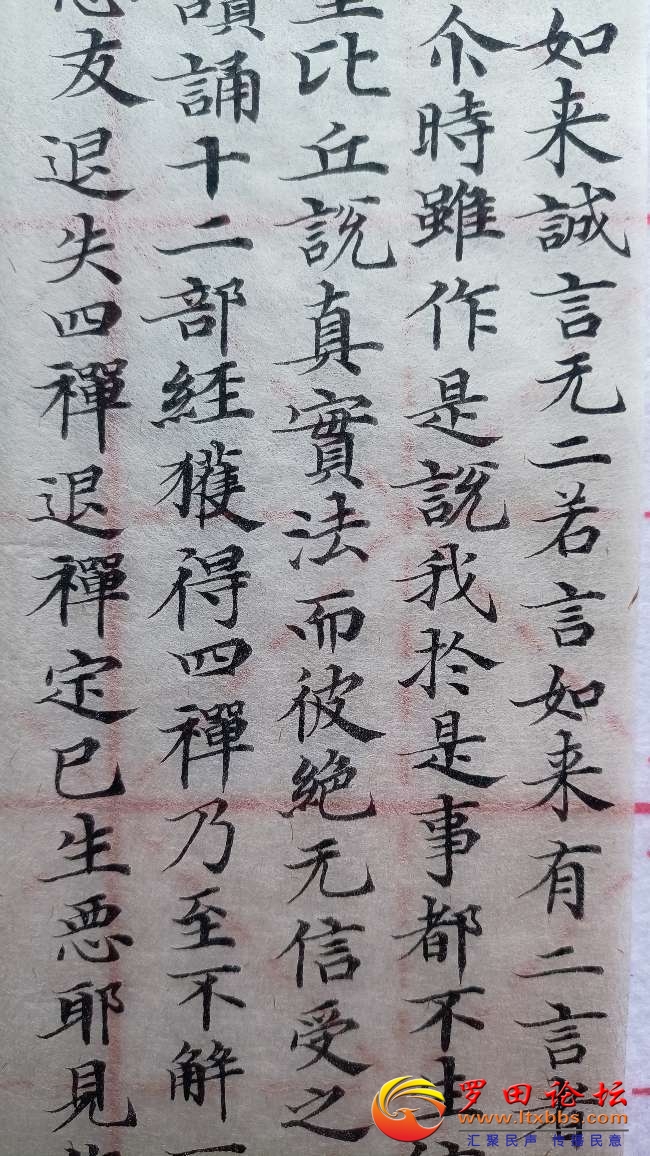 如来誠言无二若言如来有二言者
尒時雖作是說我於是事都不生信
比丘說真實法而彼絕无信受之
讀誦十二部經獲得四禪乃至不解一
惡友退失四禪退禪定已生惡耶見
罗田论坛
www.ltxbbs.com
汇聚民声 传播民意